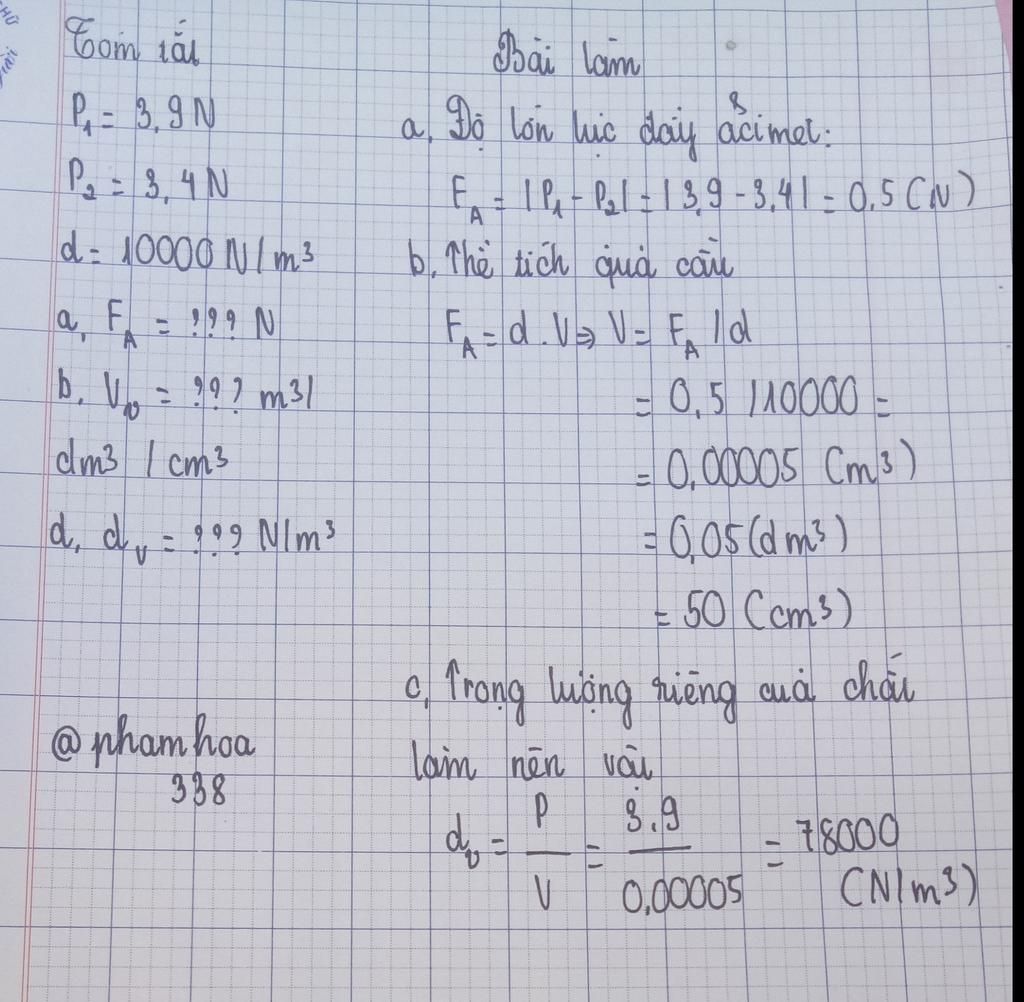 Tóm tắt
P₁ = 3,9 N
P₂ = 3,4 N
d = 10000 N/m³
a, F_A = ??? N
b, V_v = ??? m3/
dm3 / cm³
d, d_v = ??? N/m³
@phamhoa
338
Bài làm
a, Độ lớn lực đẩy ácimet:
F_A = |P₁ - P₂| = |3,9 - 3,4| = 0,5 (N)
b, Thể tích quả cầu
F_A = d . V ⇒ V = F_A / d
= 0,5 / 10000 =
= 0,00005 (m³)
= 0,05 (dm³)
= 50 (cm³)
c, Trọng lượng riêng của chất
làm nên vật
d_v = P/V = 3,9/0,00005 = 78000
(N/m³)